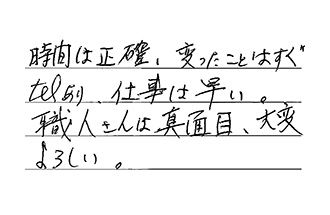 時間は正確、変ったことはすぐ
telあり、仕事は早い。
職人さんは真面目、大変
よろしい。